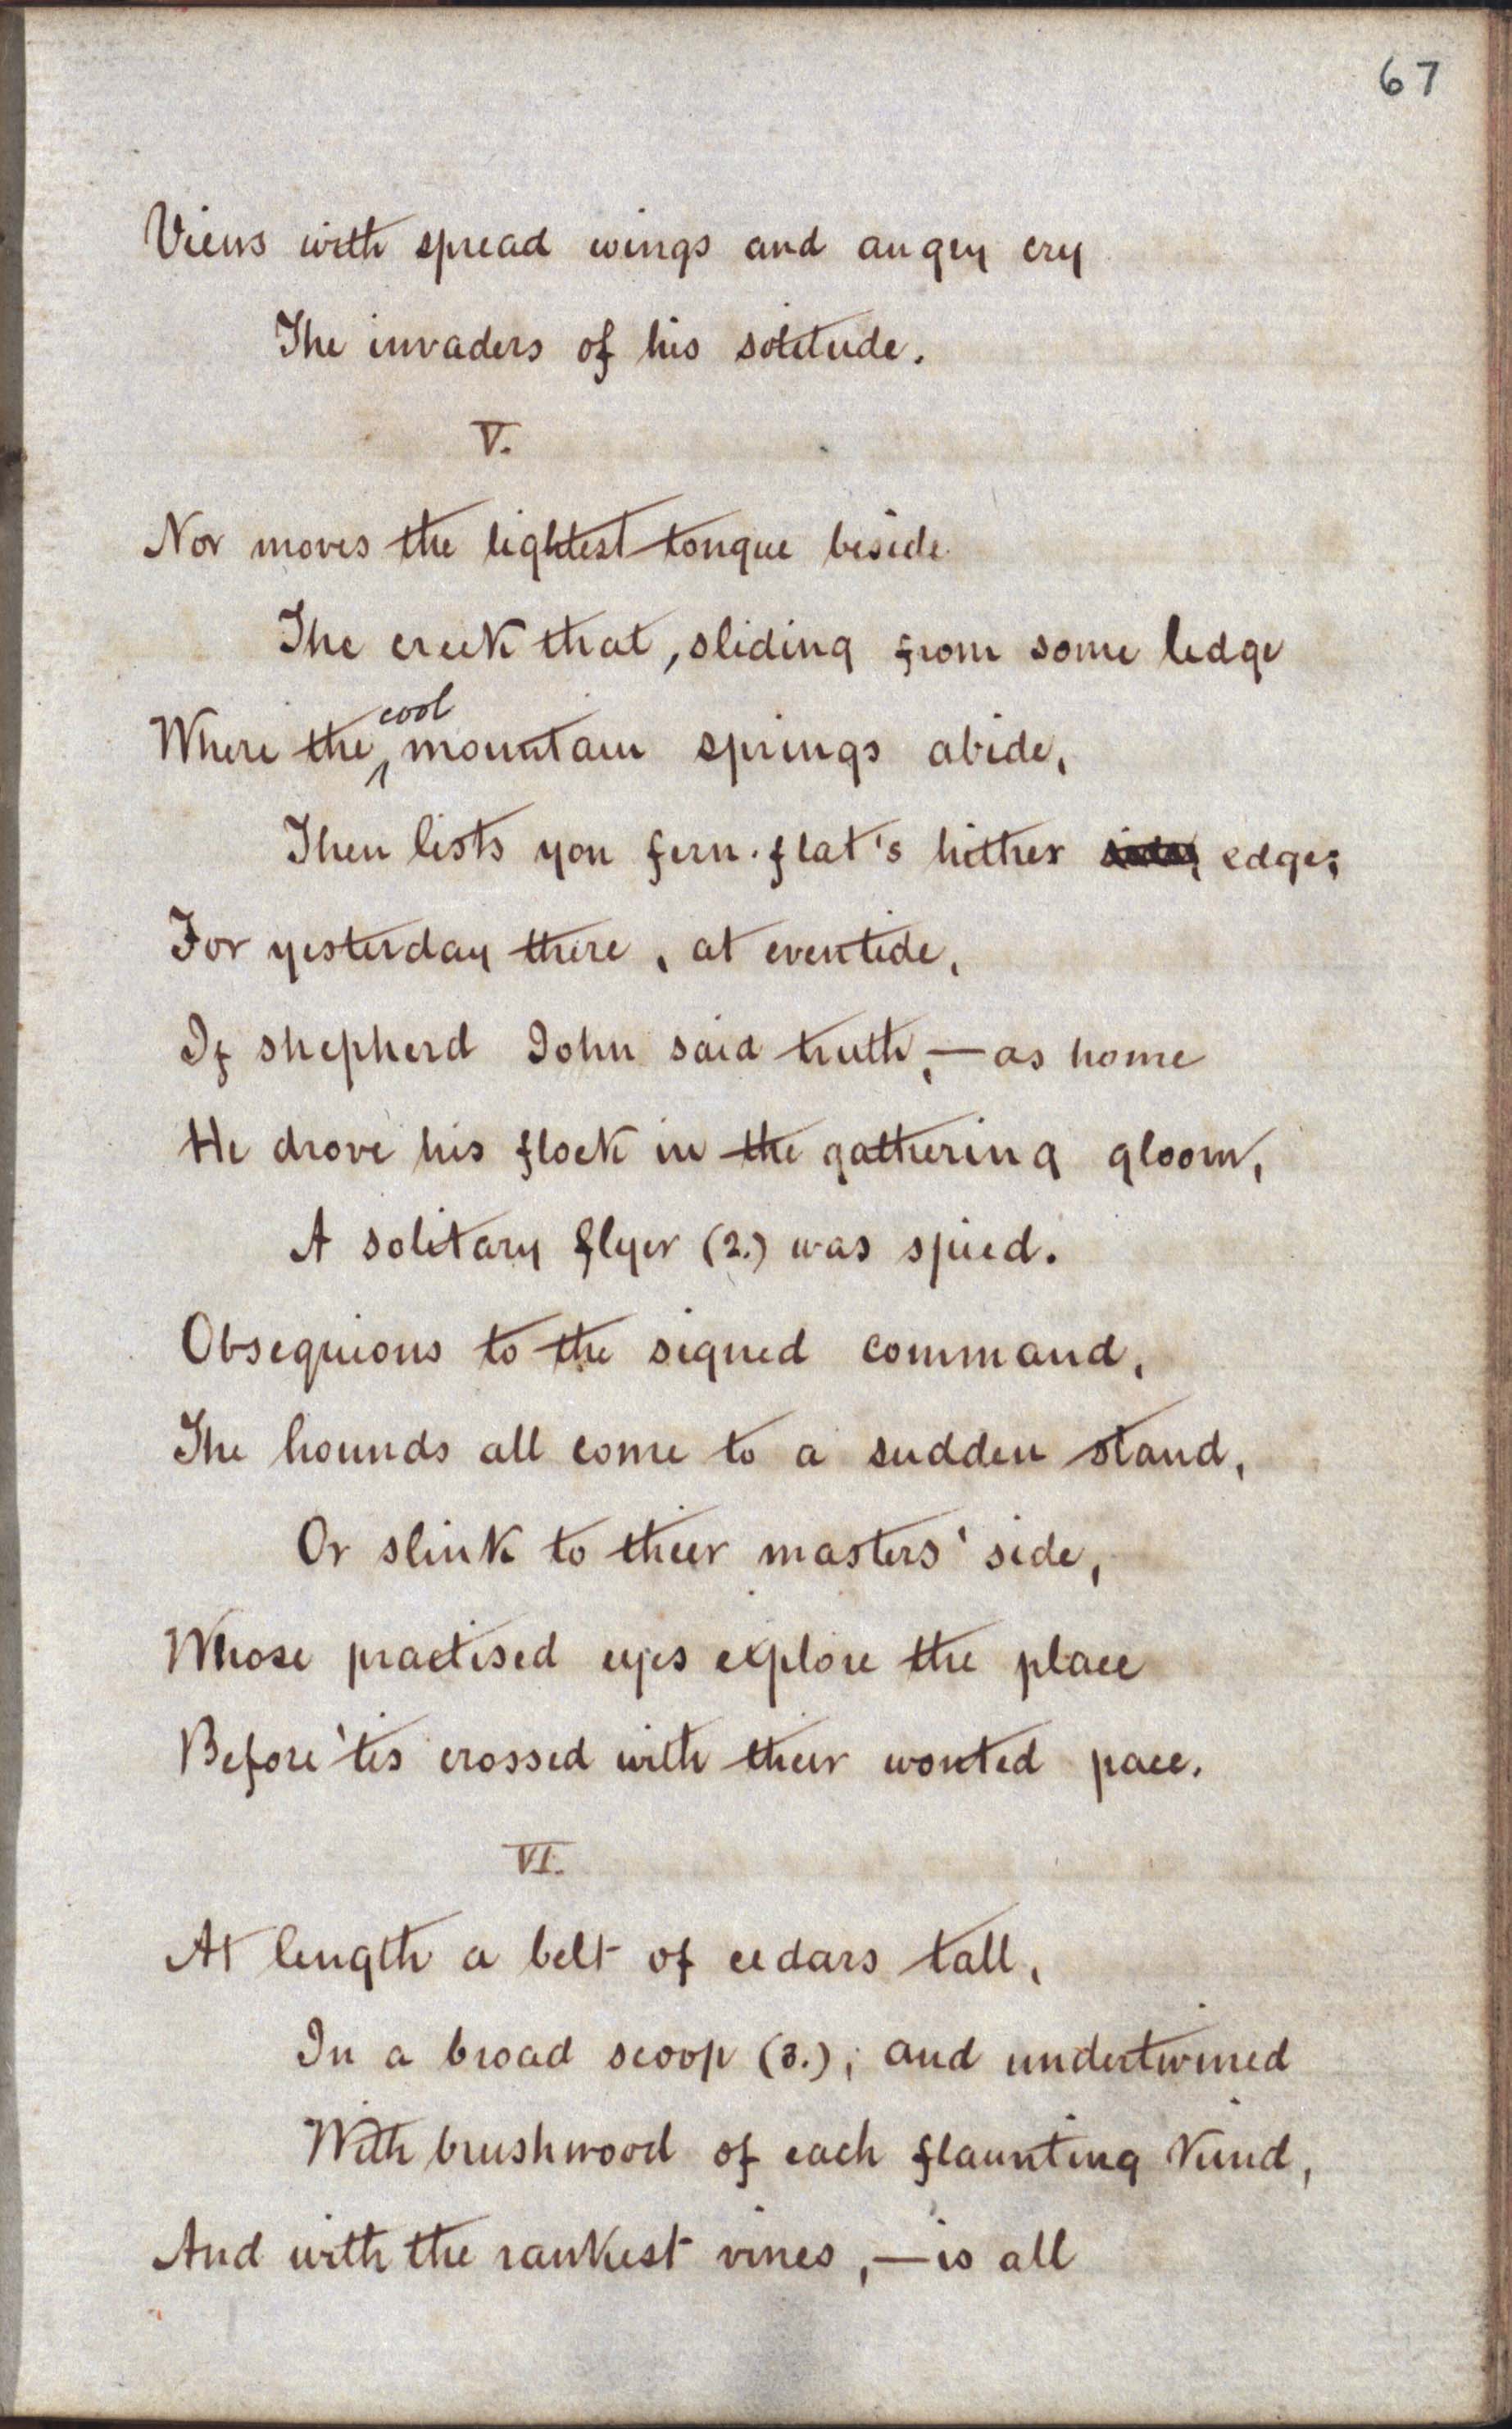 67
Views with spread wings and angry cry
The invaders of his solitude.
V.
Nor moves the lightest tongue beside
The creek that, sliding from some ledge
cool
Where the mountain springs abide,
Then lists yon fern-flat's hither edge;
For yesterday there, at eventide,
If shepherd John said truth,—as home
He drove his flock in the gathering gloom,
A solitary flyer (2.) was spied.
Obsequious to the signed command,
The hounds all come to a sudden stand,
Or slink to their masters' side,
Whose practised eyes explore the place
Before 'tis crossed with their wonted pace.
VI.
At length a belt of cedars tall,
In a broad scoop (3.), and undertwined
With brushwood of each flaunting kind,
And with the rankest vines,—is all